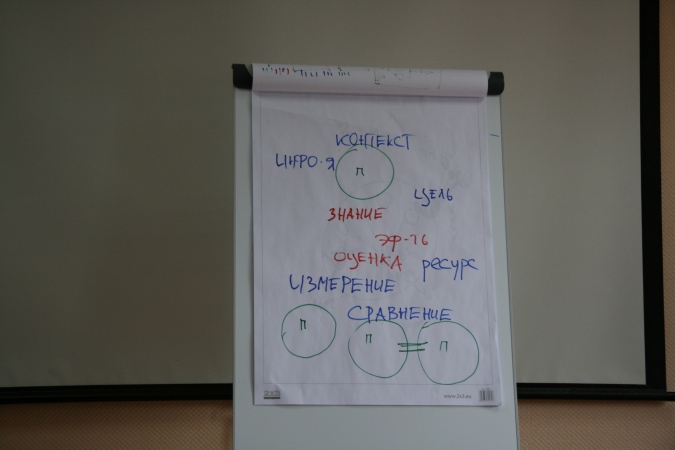 КОНТЕКСТ
ИНФО-Я
П
ЦЕЛЬ
ЗНАНИЕ
ЭФ-ТЬ
ОЦЕНКА РЕСУРС
ИЗМЕРЕНИЕ
СРАВНЕНИЕ
П П = П
www.2x3.ru